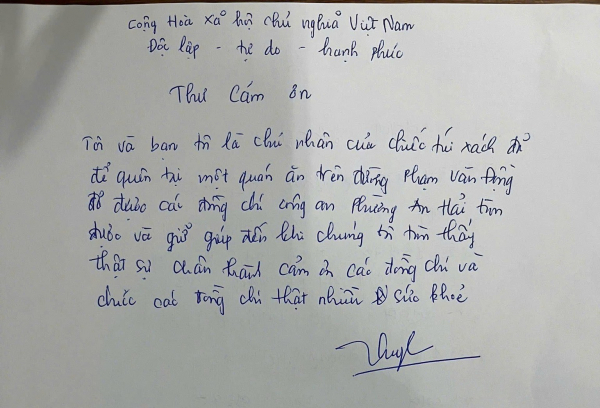 Cộng Hoà xả hội chủ nghuả Việt Nam
Độc lập - tự do - hạnh phúc
Thư Cám ơn
Tôi và bạn tôi là chủ nhân của chiếc túi xách đả
để quên tại một quán ăn trên đường Phạm Văn Đồng
đả được các đồng chí công an Phường An Hải tìm
được và giử giúp đến khi chúng tôi tìm thấy
thật sự chân thành cảm ơn các đồng chí và
chúc các đồng chí thật nhiều sức khoẻ